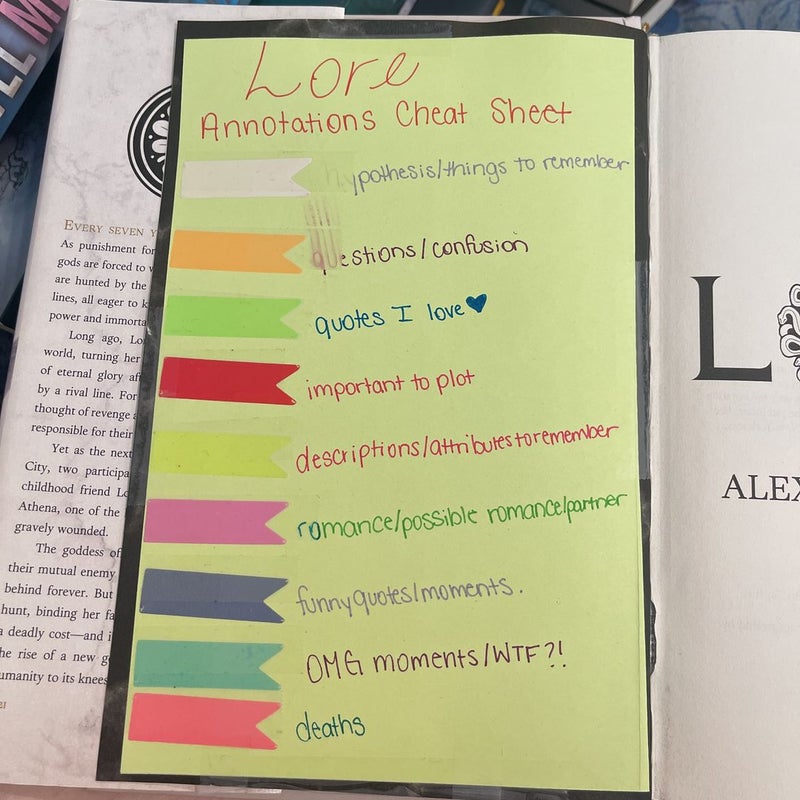 LL M
Lore
Annotations Cheat Sheet
hypothesis/things to remember
questions/confusion
quotes I love
important to plot
descriptions/attributes to remember
romance/possible romance/partner
funny quotes/moments.
OMG moments/WTF?!
deaths
EVERY SEVEN
As punishment for
gods are forced to
are hunted by the
lines, all eager to
power and
Long ago,
world, turning her
of eternal glory
by a rival line. For
thought of revenge
responsible for their
Yet as the next
City, two
childhood friend
Athena, one of the
gravely wounded.
The goddess of
their mutual enemy
behind forever. But
hunt, binding her
a deadly cost—and
the rise of a new
to its knees
L
ALEX